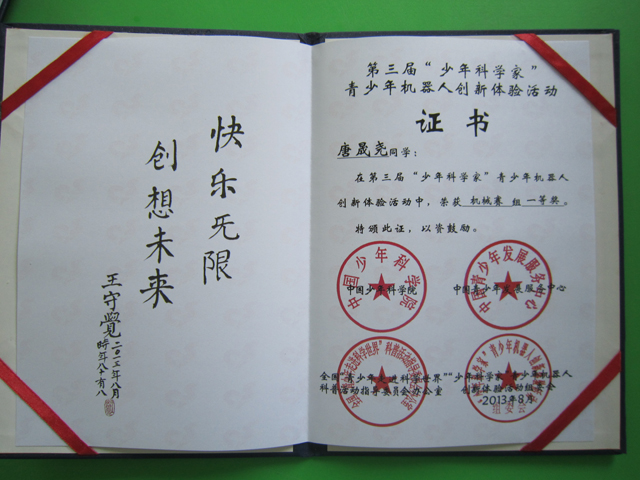 快乐无限
创想未来
王守觉
二〇一三年八月
时年八十有八
第三届“少年科学家”
青少年机器人创新体验活动
证书
唐晟尧同学：
在第三届“少年科学家”青少年机器人
创新体验活动中，荣获 机械赛 组 一等奖。
特颁此证，以资鼓励。
中国少年科学院
中国少年科学院
中国青少年发展服务中心
中国青少年发展服务中心
全国“青少年走进科学世界”
科普活动指导委员会办公室
“少年科学家”青少年机器人
创新体验活动组委会
2013年8月
组委会